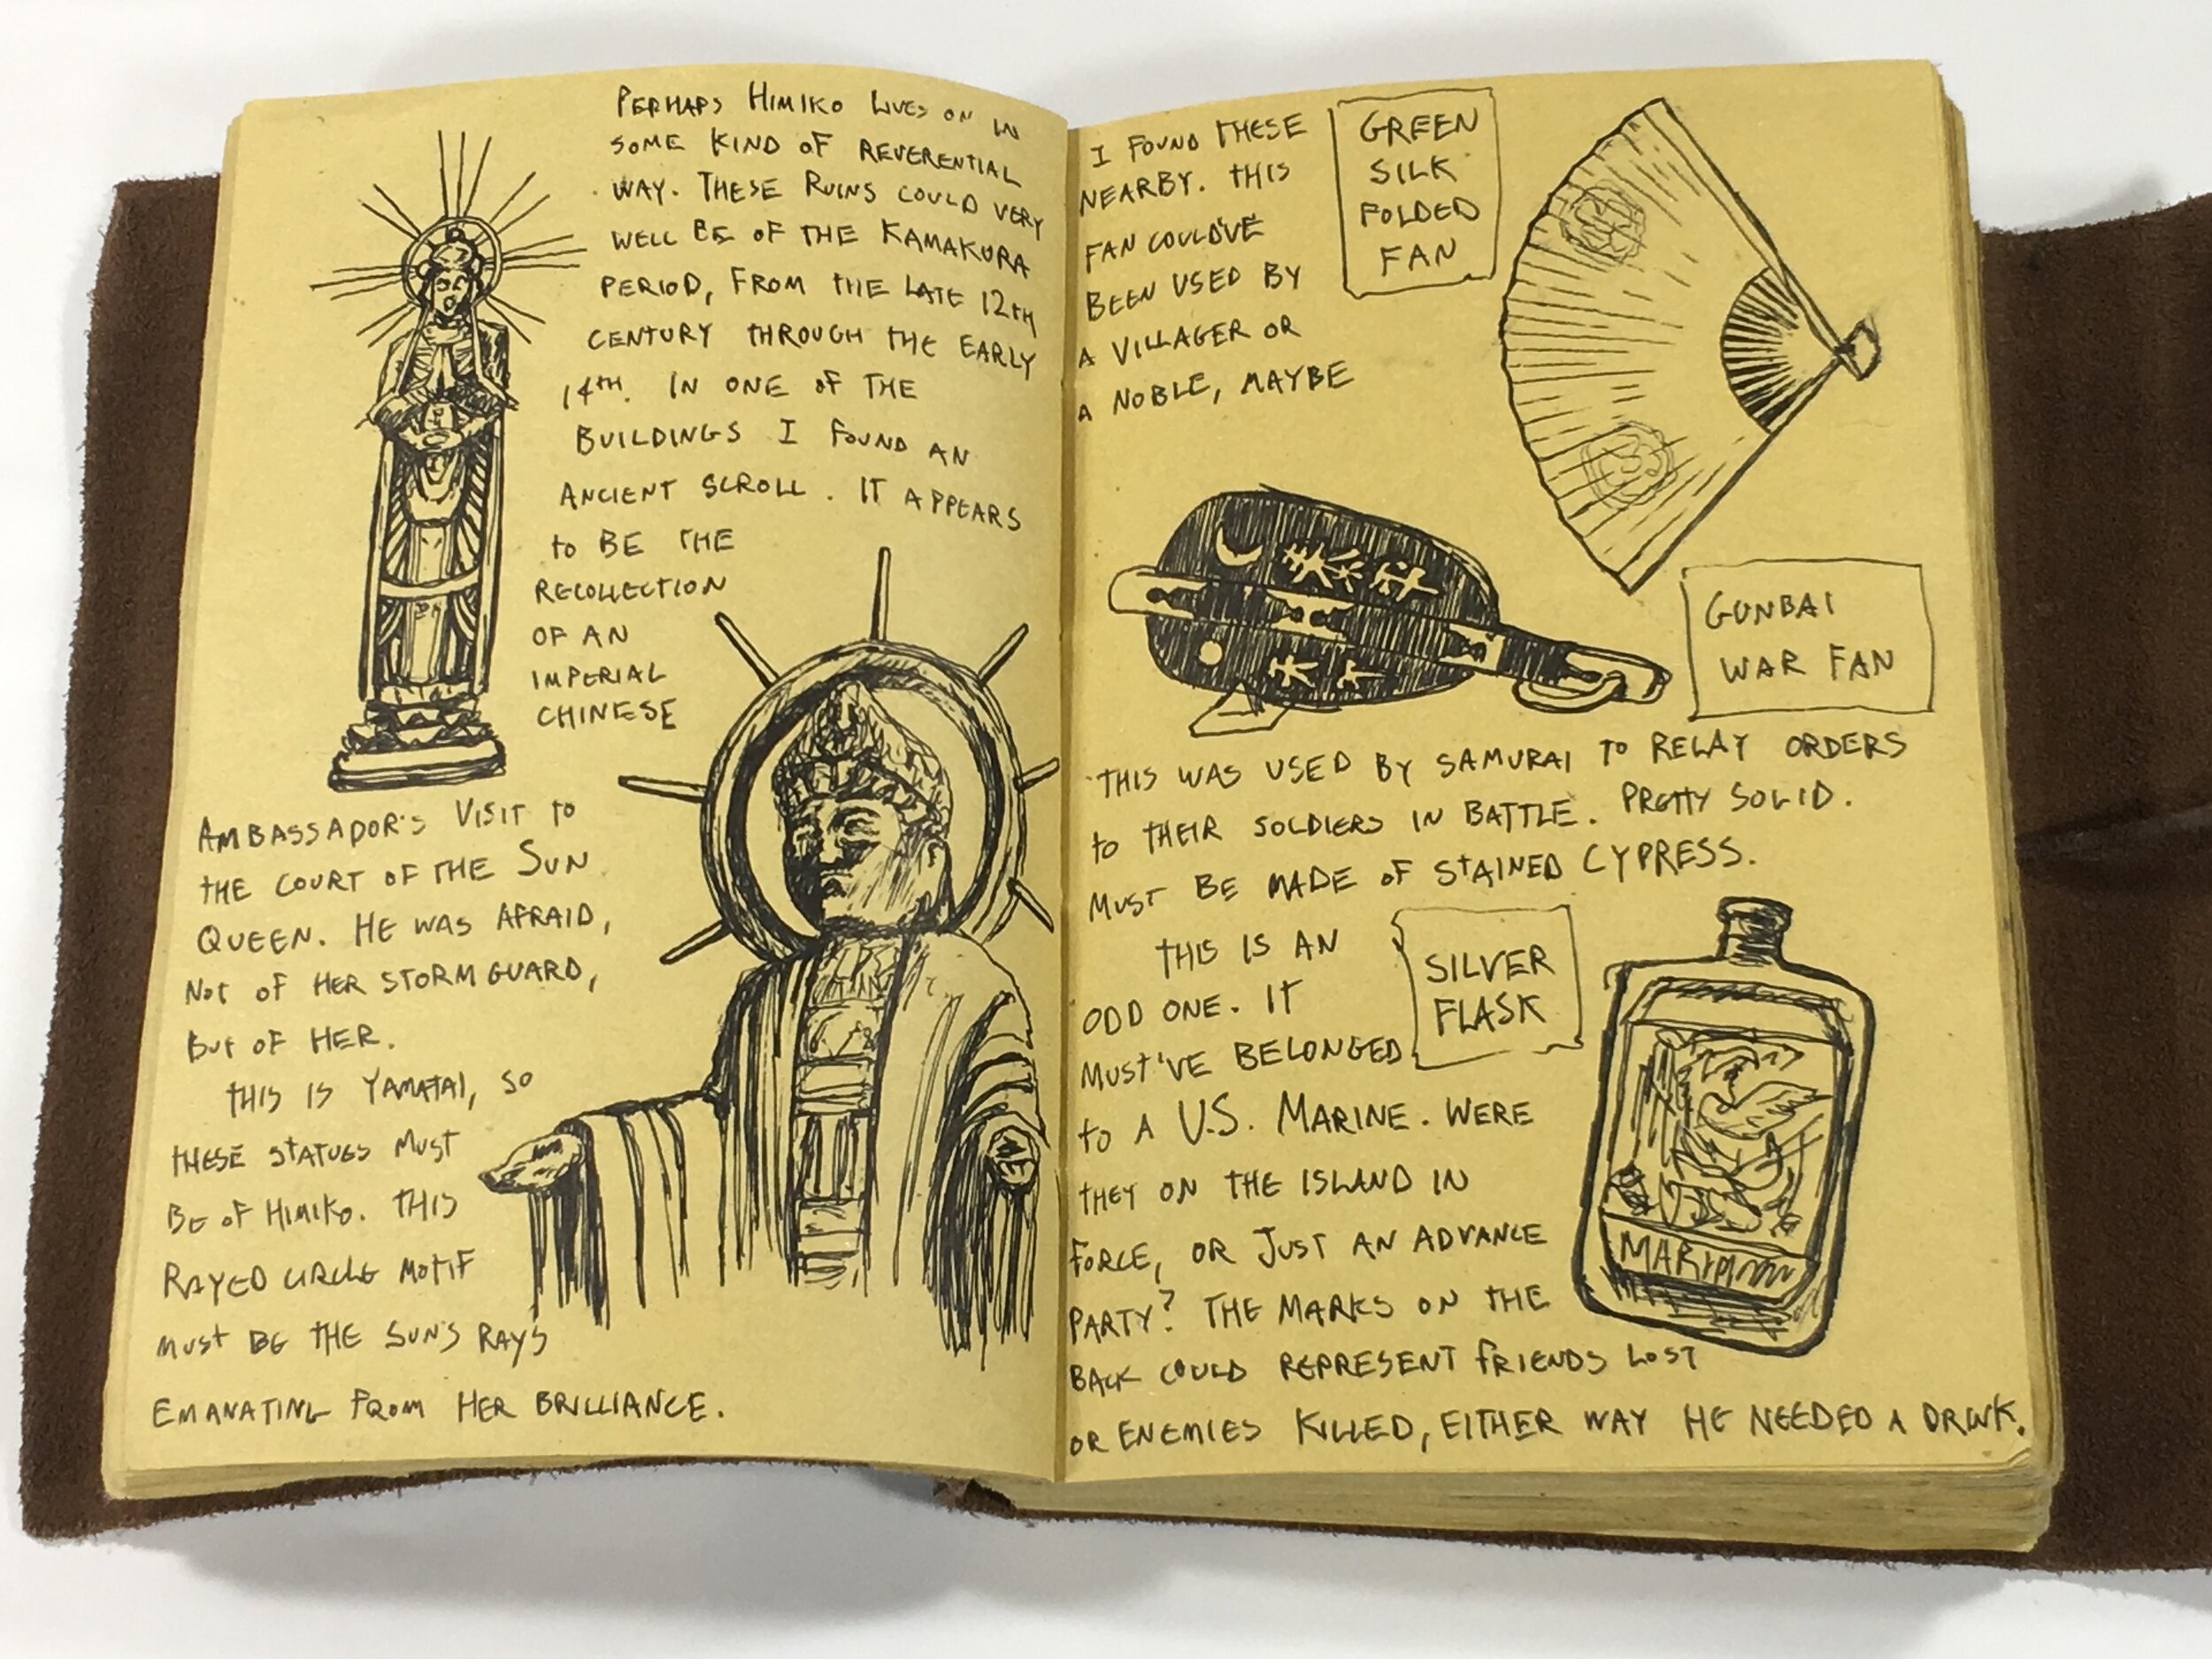 Perhaps Himiko lives on in
some kind of reverential
way. These ruins could very
well be of the Kamakura
period, from the late 12th
century through the early
14th. In one of the
buildings I found an
ancient scroll. It appears
to be the
recollection
of an
imperial
Chinese
Ambassador's visit to
the court of the Sun
Queen. He was afraid,
not of her Stormguard,
but of her.
This is Yamatai, so
these statues must
be of Himiko. This
rayed circle motif
must be the sun's rays
emanating from her brilliance.
I found these
nearby. This
fan could've
been used by
a villager or
a noble, maybe
GREEN
SILK
FOLDED
FAN
GUNBAI
WAR FAN
This was used by samurai to relay orders
to their soldiers in battle. Pretty solid.
Must be made of stained cypress.
This is an
odd one. It
must've belonged
to a U.S. Marine. Were
they on the island in
force, or just an advance
party? The marks on the
back could represent friends lost
or enemies killed, either way he needed a drink.
SILVER
FLASK